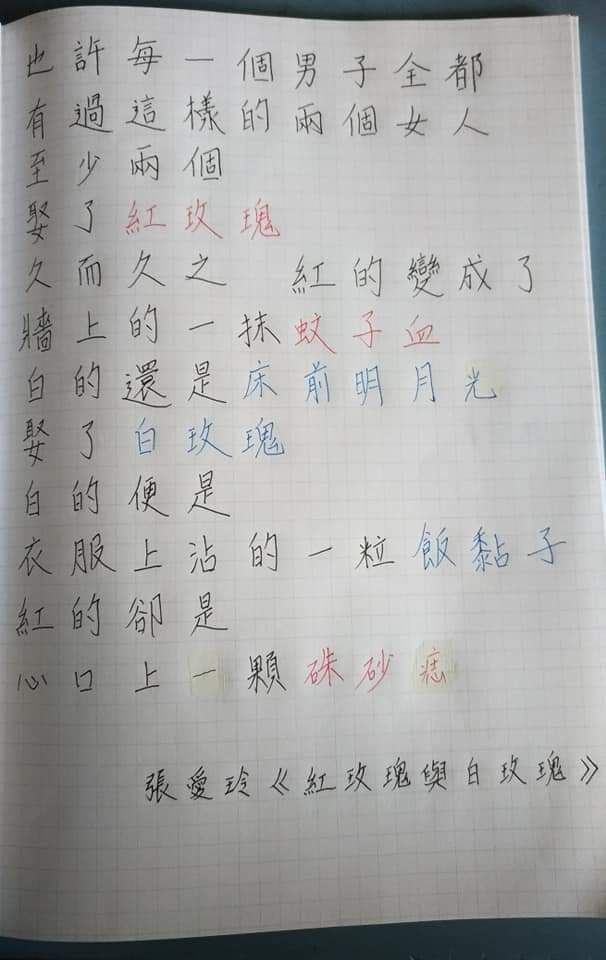 也許每一個男子全都
有過這樣的兩個女人
至少兩個
娶了紅玫瑰
久而久之 紅的變成了
牆上的一抹蚊子血
白的還是床前明月光
娶了白玫瑰
白的便是
衣服上沾的一粒飯黏子
紅的卻是
心口上一顆硃砂痣
張愛玲《紅玫瑰與白玫瑰》